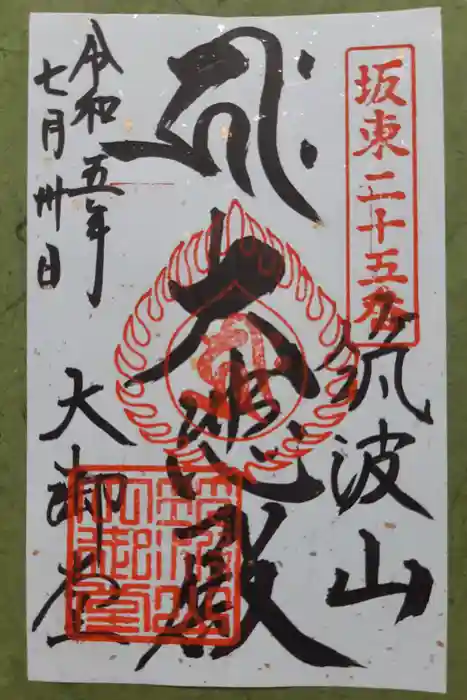 坂東二十五番
筑波山
大悲殿
令和五年
七月卅日
大御堂